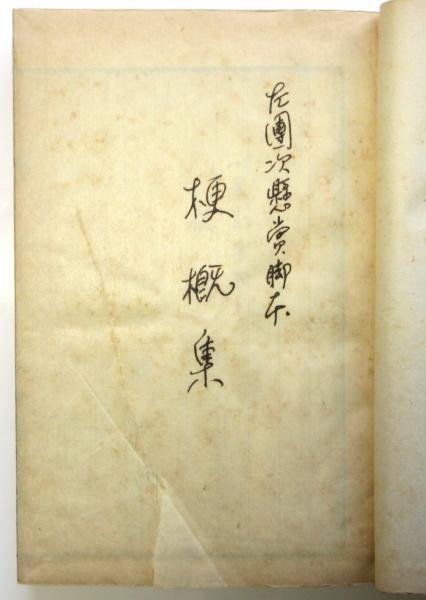 左團次懸賞脚本
梗概集